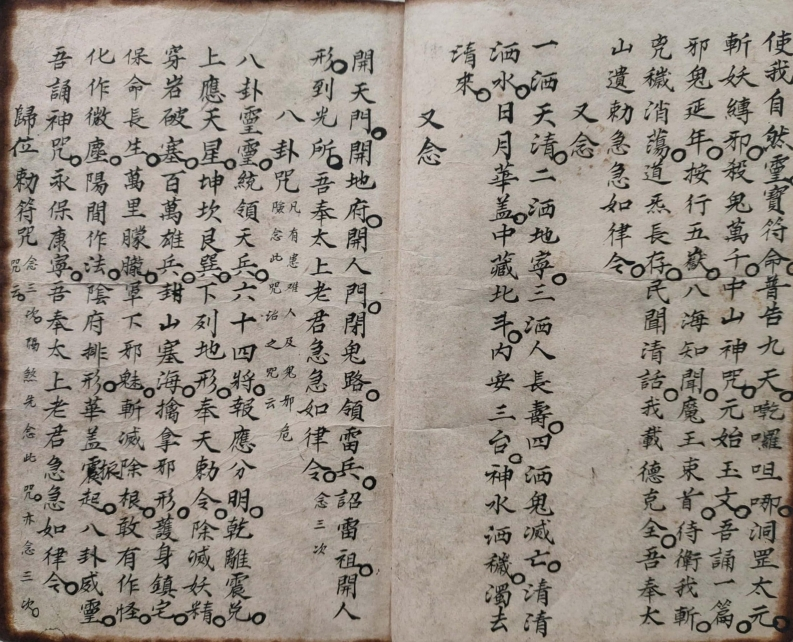 使我自然靈寶符命普告九天乾囉呾哪洞罡太元
斬妖縛邪殺鬼萬千中山神咒元始玉文吾誦一篇
邪鬼延年按行五嶽八海知聞魔王束首侍衛我斬
兇穢消蕩道炁長存民聞清話我載德克全吾奉太
山遺勅急急如律令
又念
一洒天清二洒地寧三洒人長壽四洒鬼滅亡清清
洒水日月華盖中藏北斗内安三台神水洒穢濁去
清來
又念
開天門開地府開人門閉鬼路領雷兵詔雷祖開人
形到光所吾奉太上老君急急如律令念三次
八卦咒凡有患难人及鬼邪危
險念此咒治之咒云
八卦靈靈統領天兵六十四將報應分明乾離震兌
上應天星坤坎艮巽下列地形奉天勅令除滅妖精
穿岩破塞百萬雄兵封山塞海擒拿邪形護身鎮宅
保命長生萬里朦朧罩下邪魅斬滅除根敢有作怪
化作微塵陽間作法陰府排形華盖震振起八卦威靈
吾誦神咒永保康寧吾奉太上老君急急如律令
歸位勅符咒念三次隔煞先念此咒亦念三次
咒云